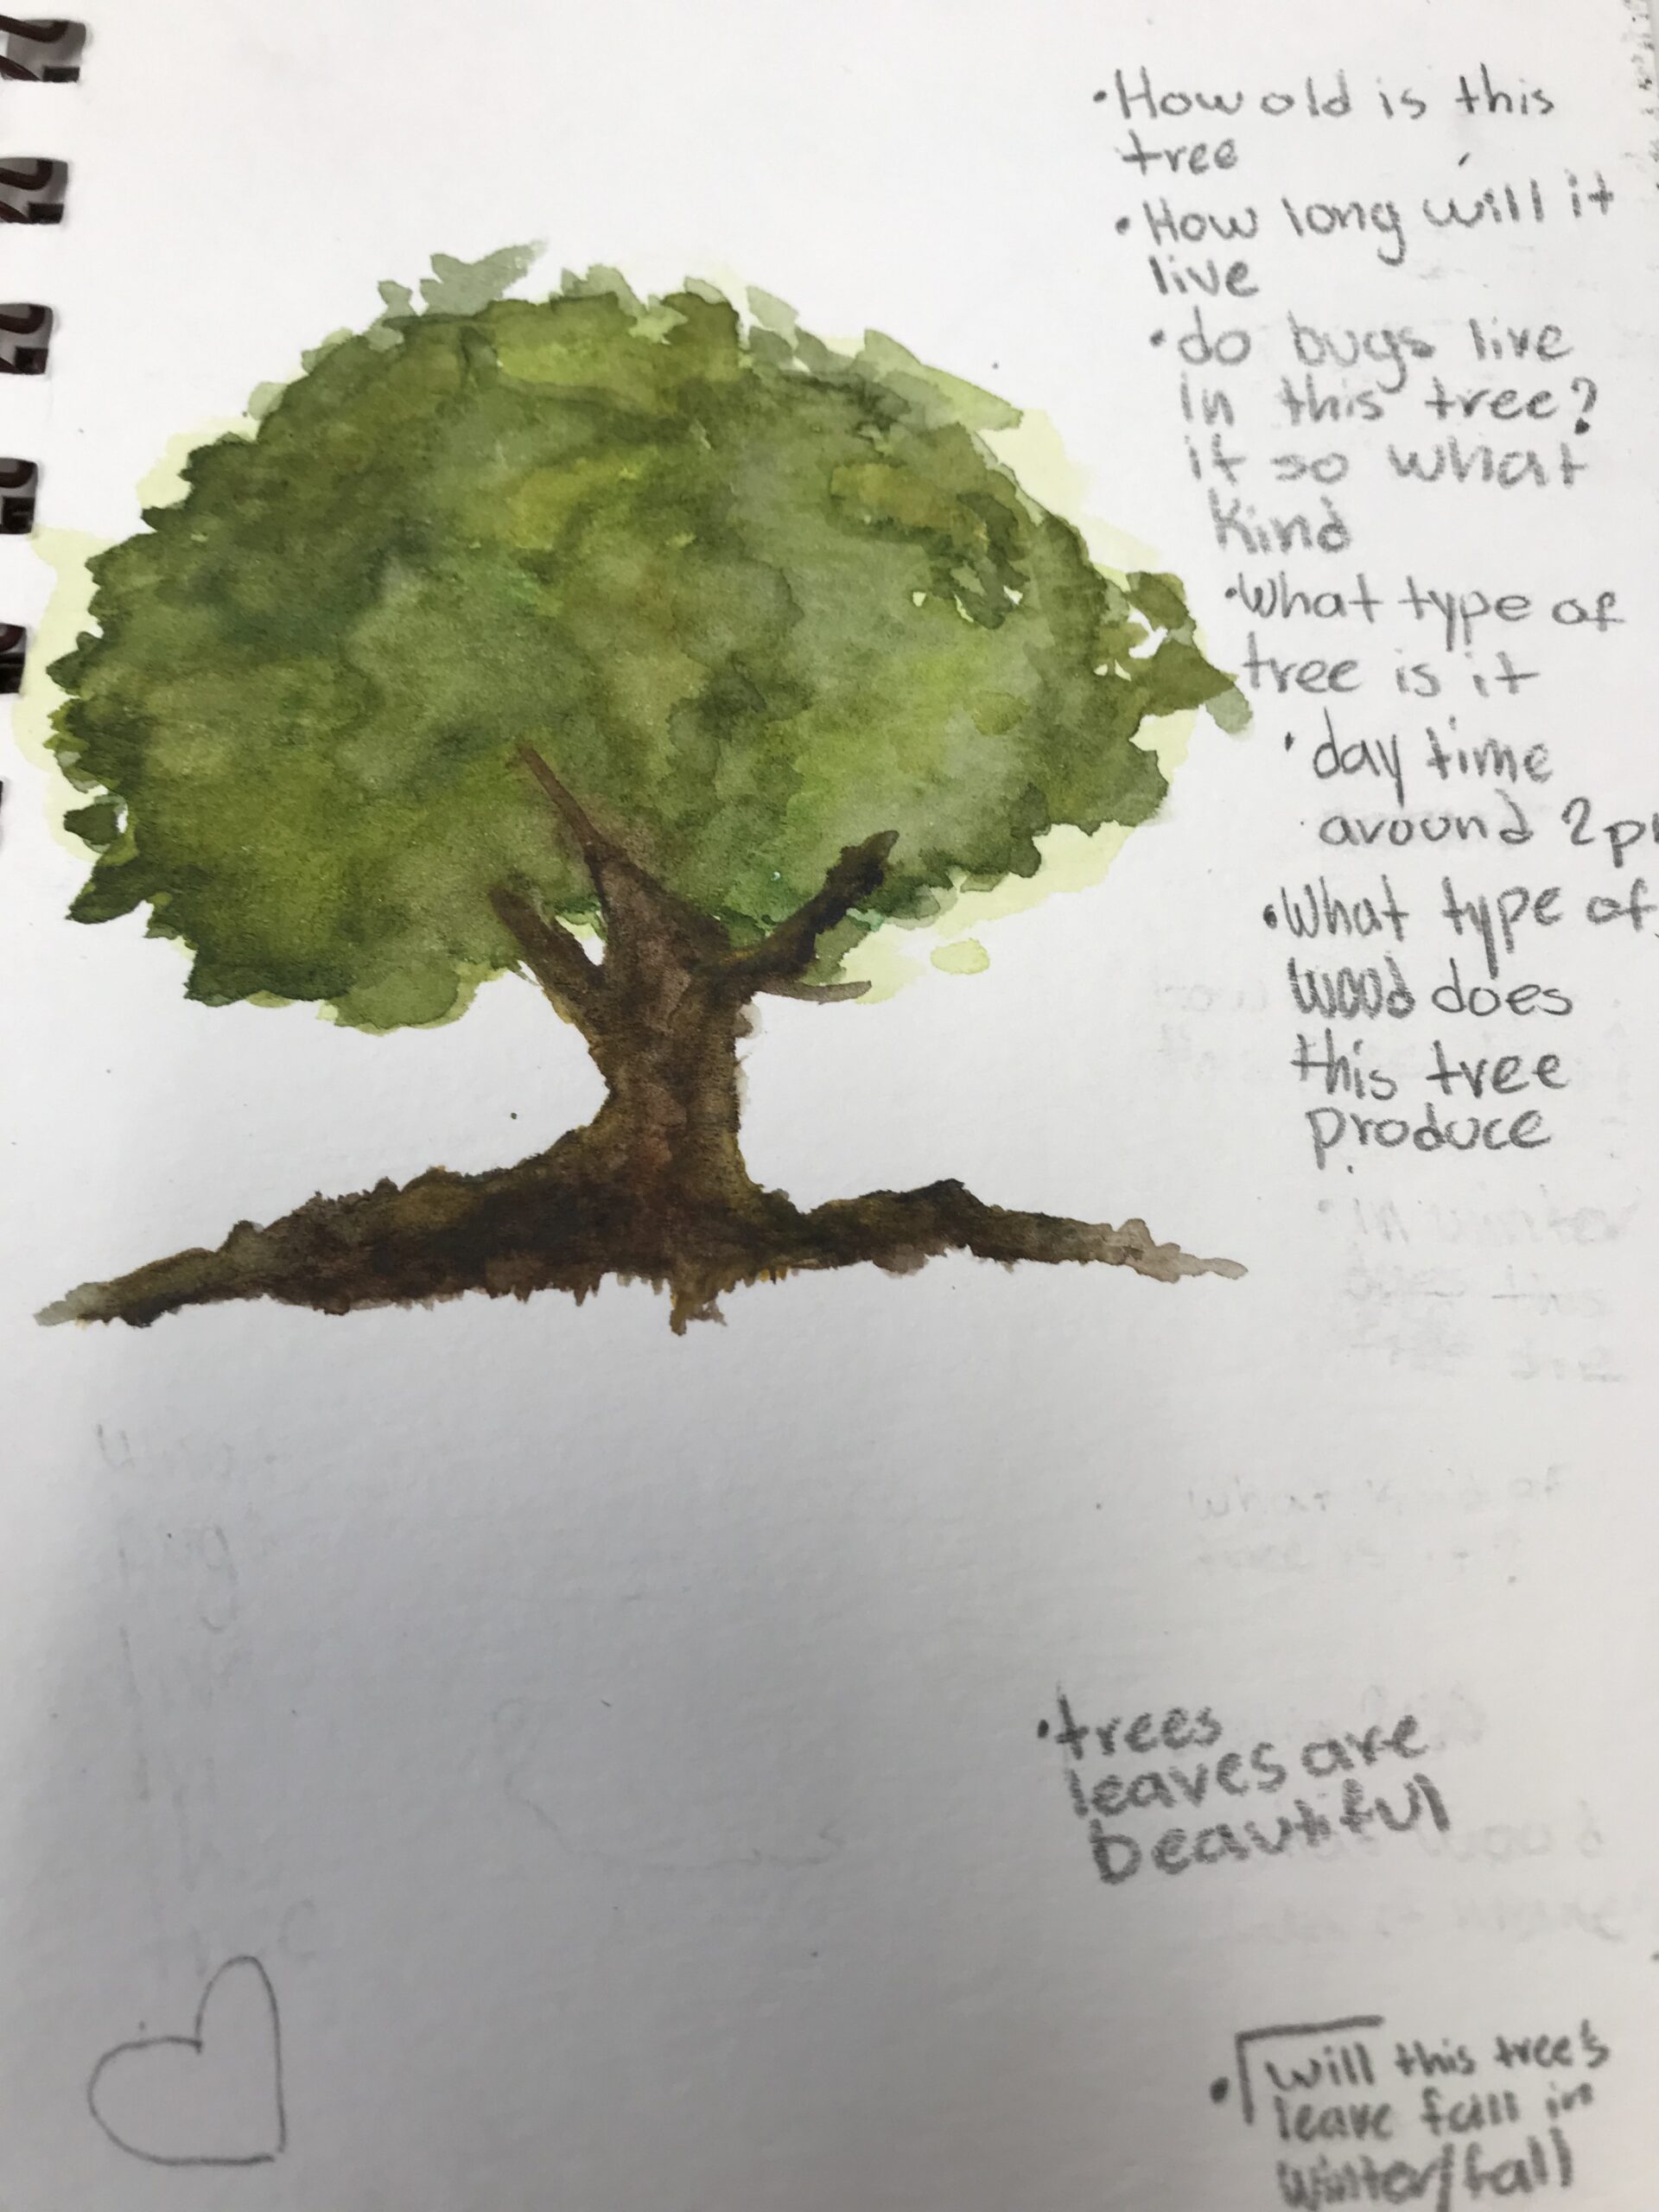 •How old is this
tree
•How long will it
live
•do bugs live
in this tree?
if so what
kind
•What type of
tree is it
•day time
around 2p
•What type of
wood does
this tree
produce
•trees
leaves are
beautiful
•will this tree's
leave fall in
winter/fall